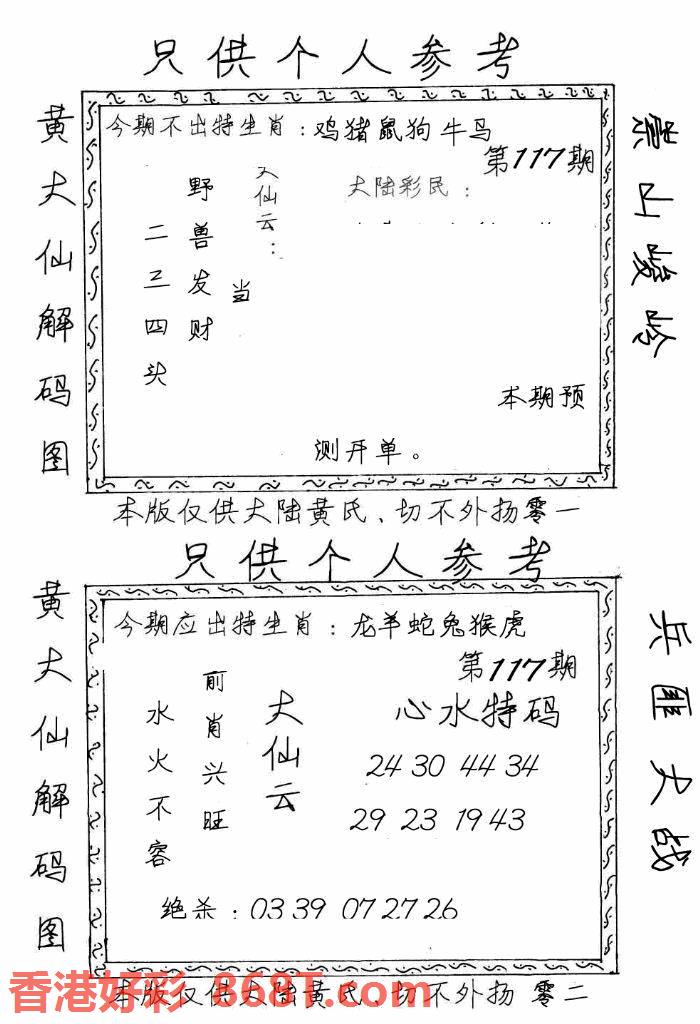 只供个人参考
黄大仙解码图
今期不出特生肖：鸡猪鼠狗牛马
第117期
大仙云：
大陆彩民：
野兽发财
二三四头
当
本期预
测开单。
崇山峻岭
本版仅供大陆黄氏、切不外扬零一
只供个人参考
黄大仙解码图
今期应出特生肖：龙羊蛇兔猴虎
第117期
前肖兴旺
水火不容
大仙云
心水特码
24 30 44 34
29 23 19 43
绝杀：03 39 07 27 26
兵匪大战
本版仅供大陆黄氏、切不外扬 零二
香港好彩 868T.com